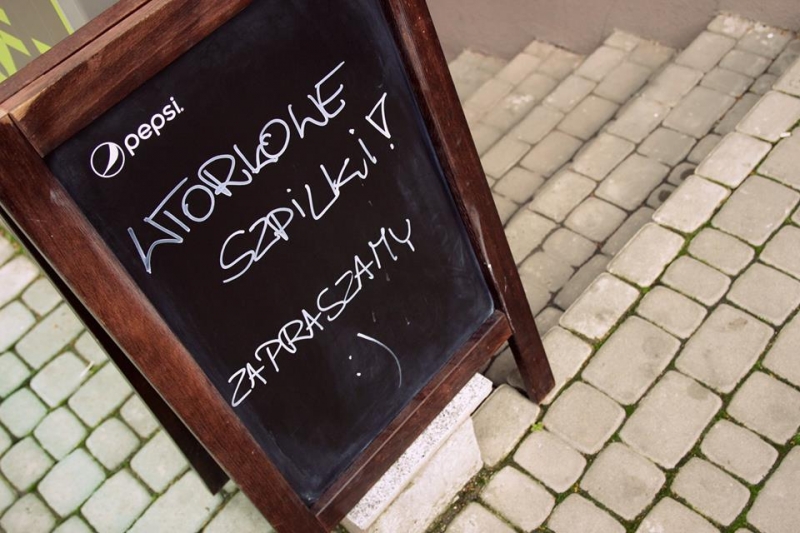 pepsi.
WTORKOWE
SZPILKI!
ZAPRASZAMY
:)